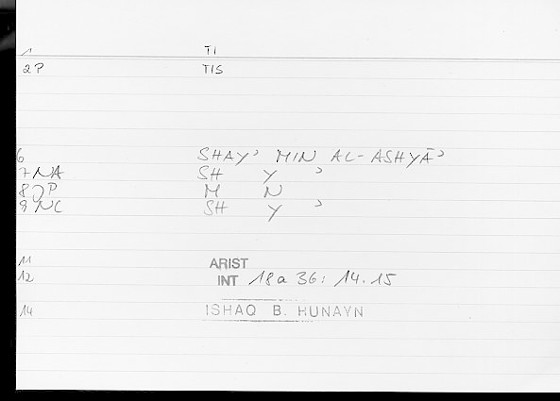 1 TI
2P TIS
6 SHAY' MIN AL-ASHYĀ'
7NA SH Y '
8JP M N
9NC SH Y '
11 ARIST
12 INT 18a 36: 14.15
14 ISHAQ B. HUNAYN